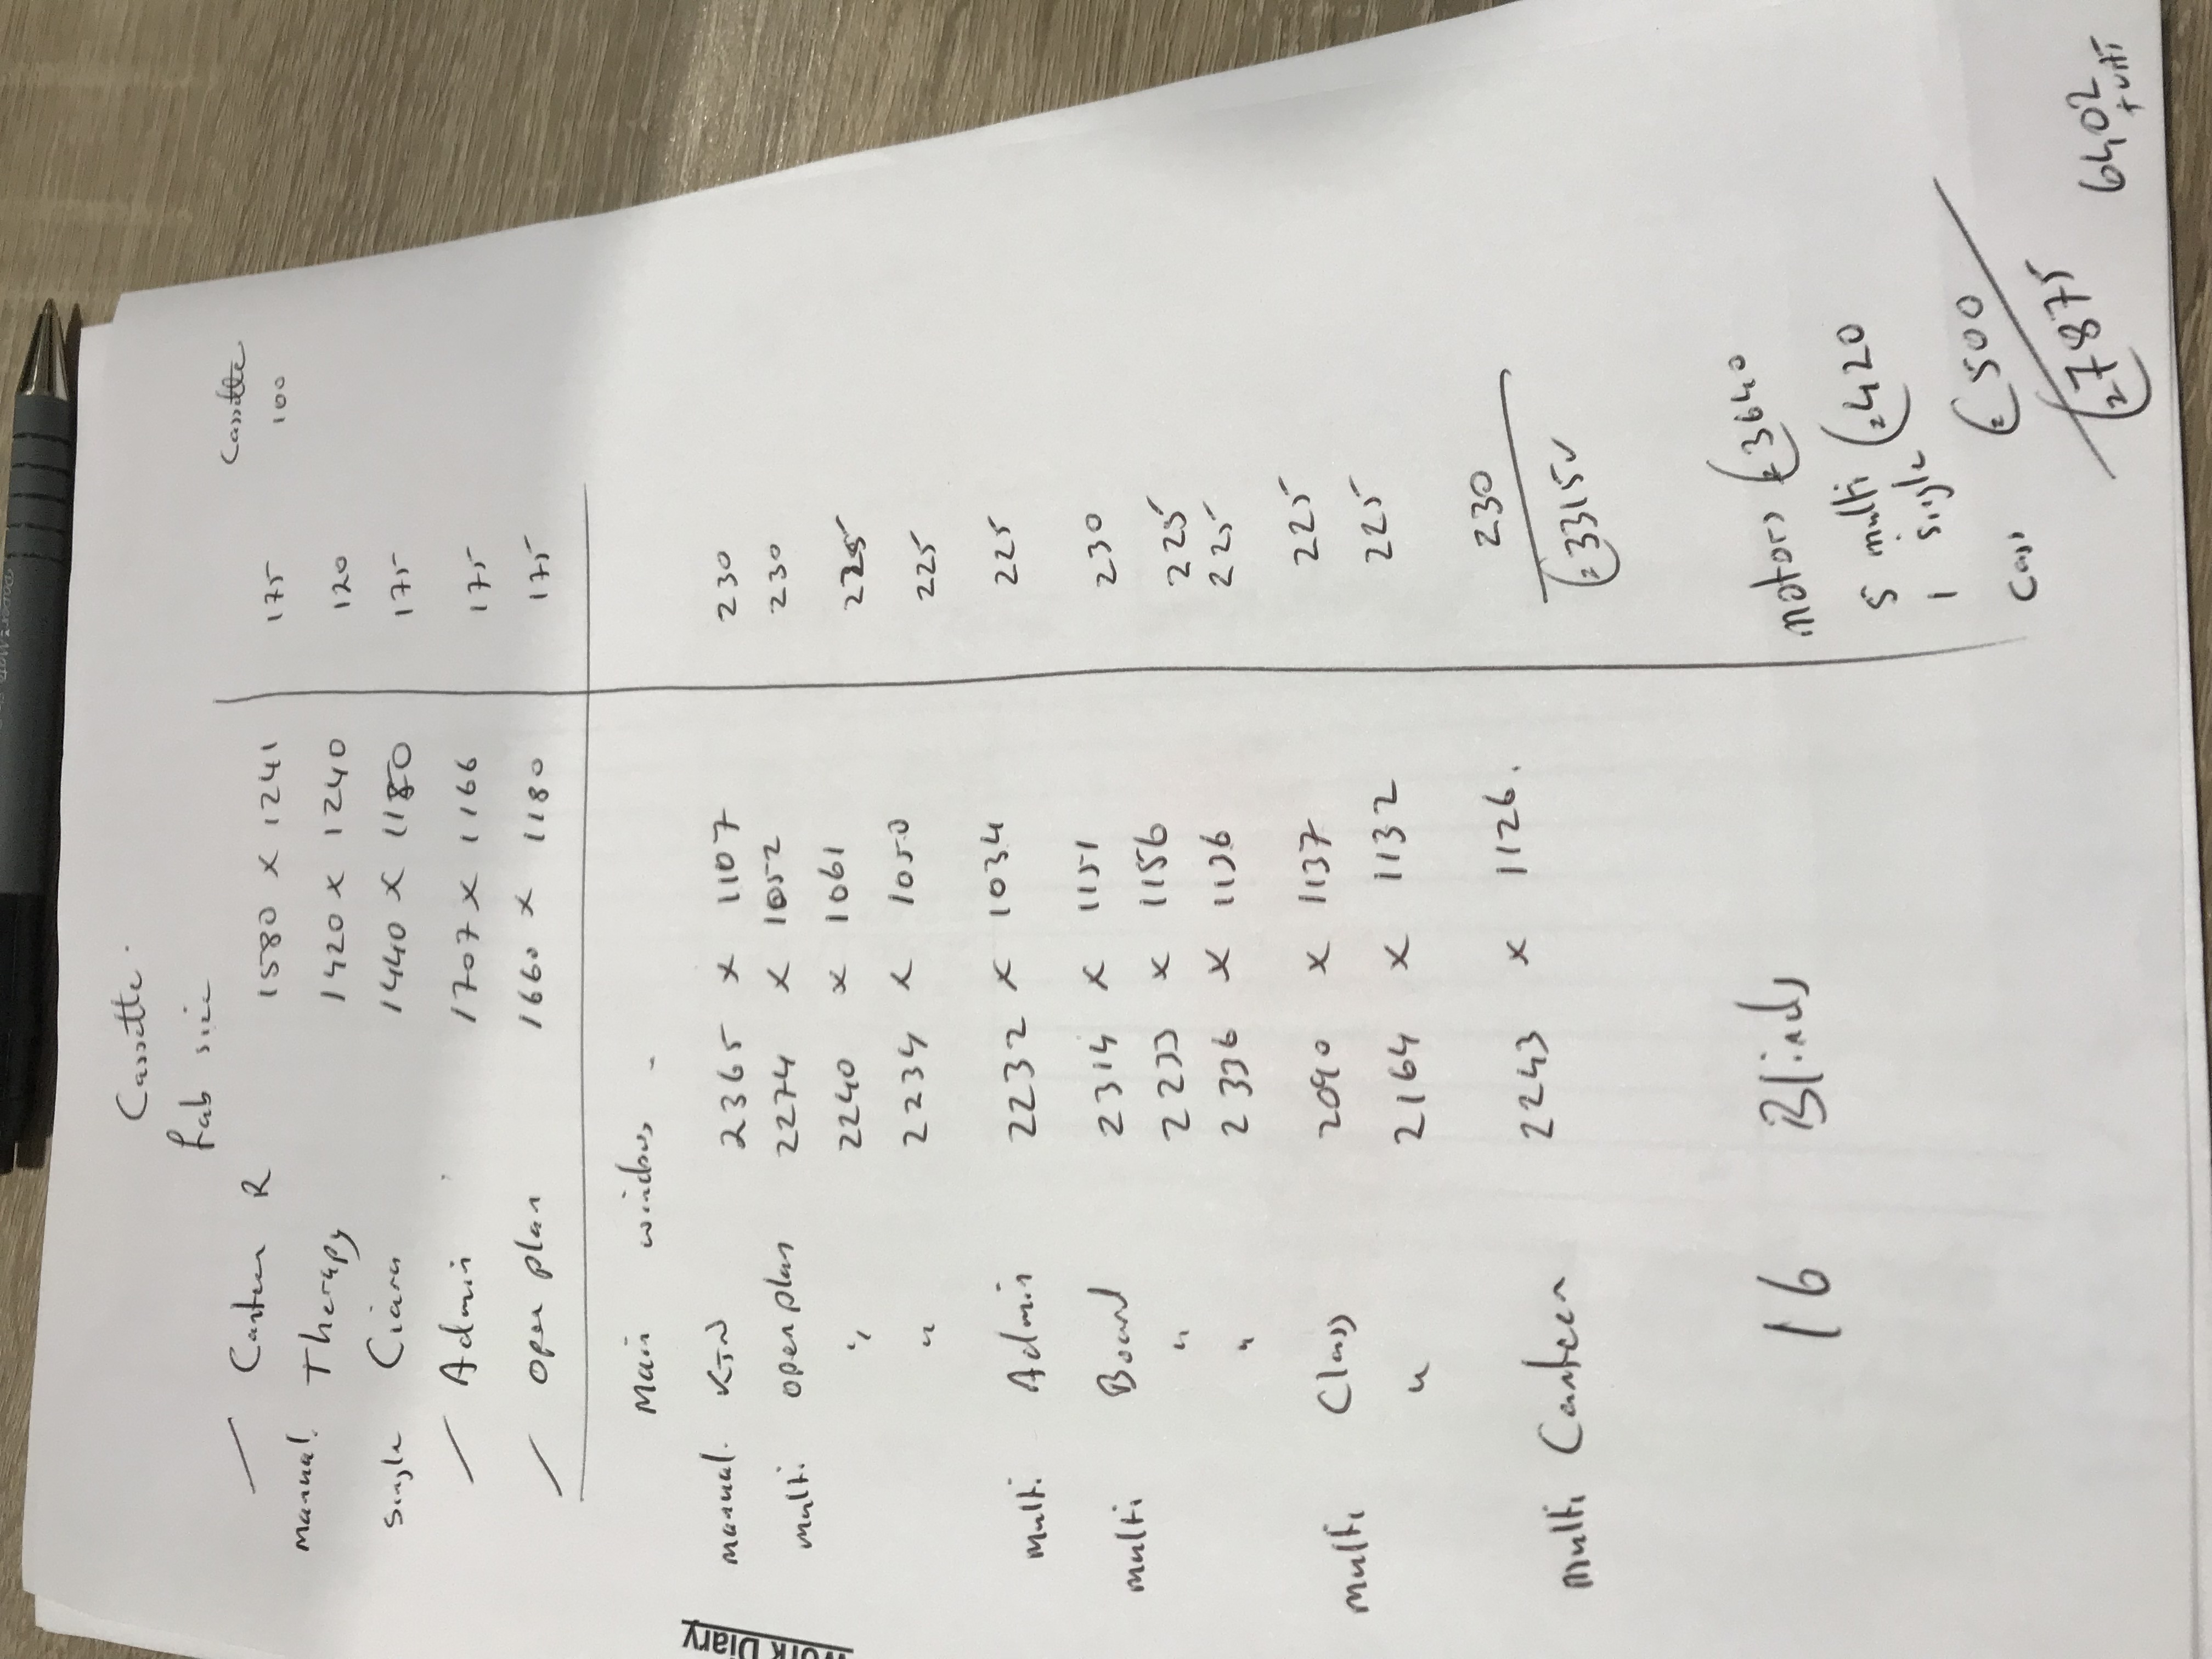 Cassette.
fab size
Cassette
— Canteen R 1580 x 1241 175 100
manual. Therapy 1420 x 1240 120
Single Ciara 1440 x 1180 175
— Admin 1707 x 1166 175
— open plan 1660 x 1180 175
Main windows -
manual. 2365 x 1107 230
multi. open plan 2274 x 1052 230
" 2240 x 1061 225
" 2234 x 1050 225
multi. Admin 2232 x 1034 225
multi Board 2314 x 1151 230
" 2233 x 1156 225
" 2336 x 1136 225
multi Class 2090 x 1137 225
" 2164 x 1132 225
multi Canteen 2243 x 1126. 230
3315
16 Blinds
motors 3640
5 multi 420
1 single
Cass 500
7875
6402
Work Diary